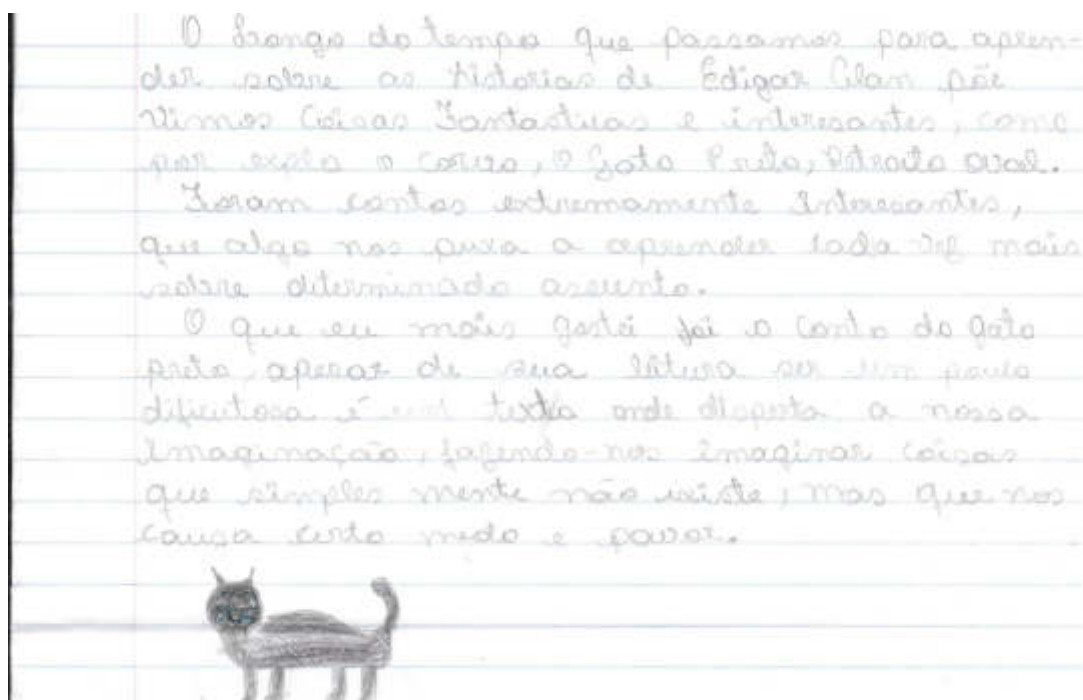 O longo do tempo que passamos para apren-
der sobre as historias de Edigar Alan põe
Vimos Coisas Fantasticas e interesantes, como
por explo o corvo, O Gato Preto, Retrato oval.
Foram contos extremamente Interesantes,
que algo nos puxa a aprender cada vez mais
sobre diterminado assunto.
O que eu mais gostei foi o Conto do gato
preto, apesar de sua leitura ser um pouco
dificutosa é um texto onde disperta a nossa
Imaginação, fazendo-nos imaginar coisas
que simples mente não existe, mas que nos
causa certo medo e pavor.